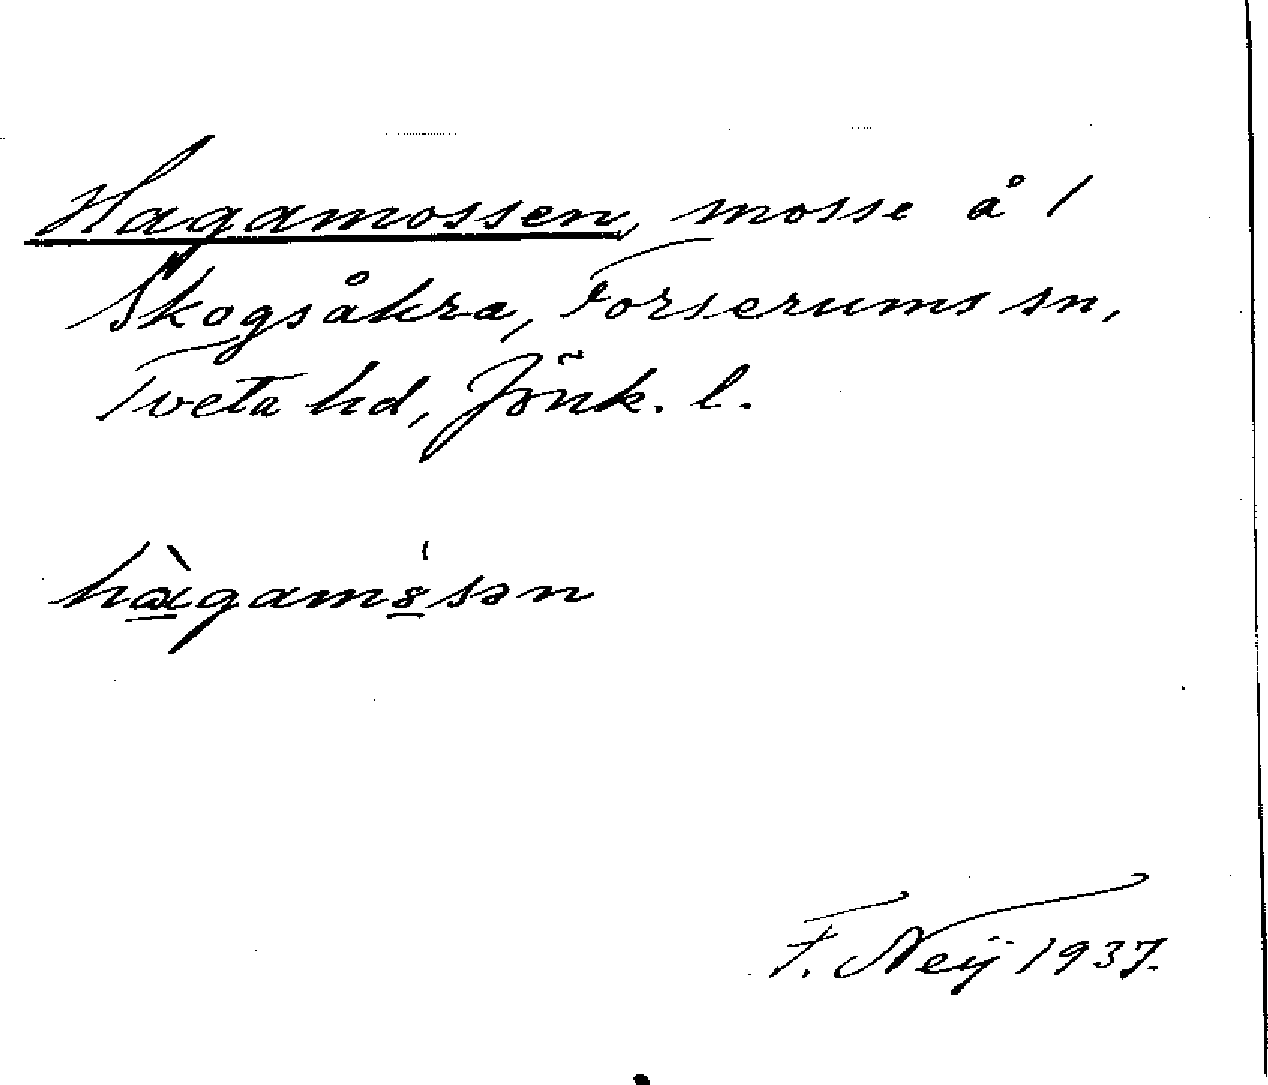 Hagamossen, mosse å 1
Skogsåkra, Forserums sn,
Tveta hd, Jönk. l.
hàgamósən
F. Neij 1937.